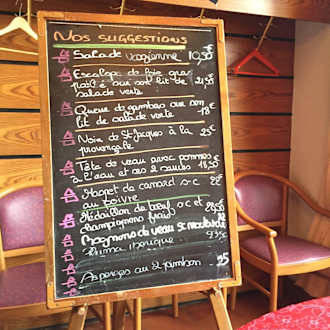 Nos suggestions
Salade vosgienne 10,50€
Escalope de foie gras
poêlé à son lit de 21,50
salade verte
Queue de gambas sur son
lit de salade verte 18€
Noix de St-Jacques à la 25€
provençale
Tête de veau avec pommes
à l'eau et ces 2 sauces 18,50
Magret de canard s-c 22€
au poivre
Médaillon de bœuf s-c et
champignons frais
Rognons de veau sc moutarde
Pluma ibérique
Asperges au 2 jambon 25